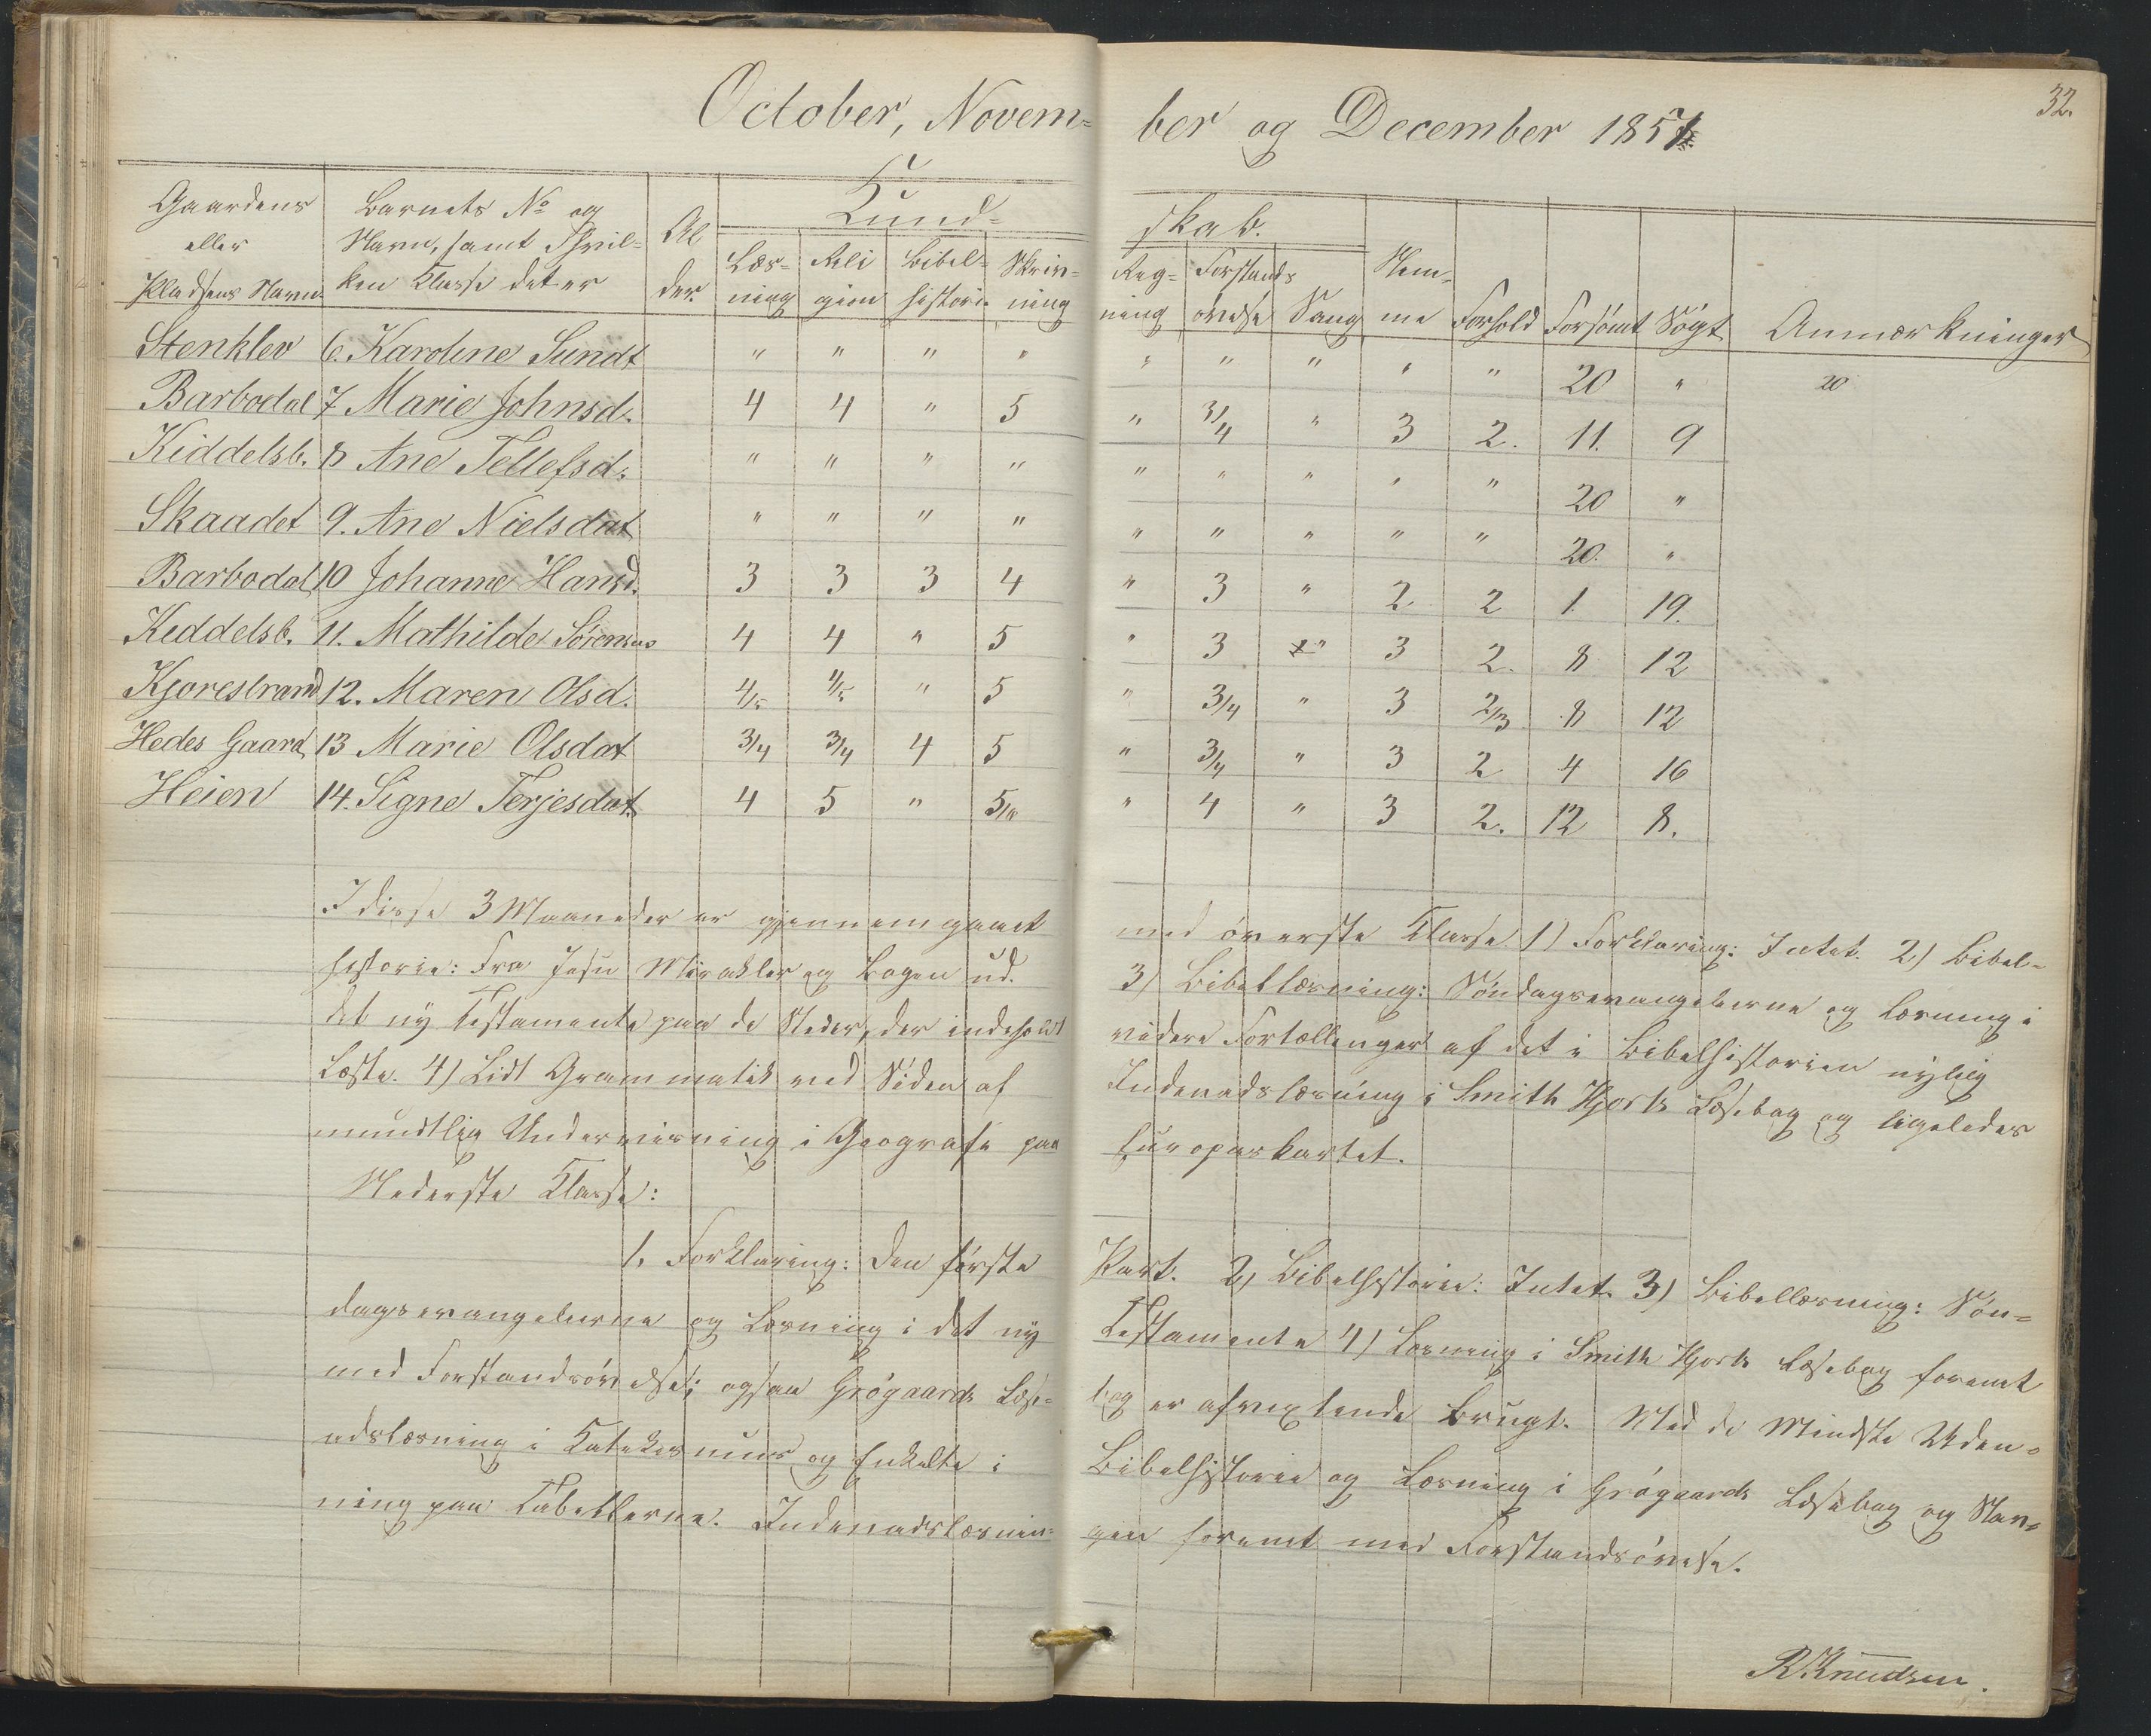 32.
October, November og December 1857
Kundskab.
Gaardens eller Pladsens Navn
Barnets No og Navn, samt Hvilken Klasse det er
Alder.
Læsning
Religion
Bibelhistorie
Skrivning
Regning
Forstandsøvelse
Sang
Stemme
Forhold
Forsømt
Søgt
Anmærkninger
Stenklev 6. Karoline Sundt " " " " " " " " " 20 " 20
Barbodal 7 Marie Johnsd. 4 4 " 5 " 3/4 " 3 2. 11. 9
Kiddelsb. 8 Ane Tellefsd. " " " " " " " " " 20 "
Skaadet 9. Ane Nielsdat " " " " " " " " " 20. "
Barbodal 10 Johanne Hansd. 3 3 3 4 " 3 " 2 2 1 19.
Keddelsb. 11. Mathilde Sørensens 4 4 " 5 " 3 " 3 2. 8 12
12. Maren Olsd. 4/5 4/5 " 5 " 3/4 " 3 2/3 8 12
Hedes Gaard 13 Marie Olsdat 3/4 3/4 4 5 " 3/4 " 3 2 4 16
Heien 14. Signe Terjesdat. 4 5 " 5/6 " 4 " 3 2. 12 8.
I disse 3 Maaneder er gjennemgaaet med øverste Klasse 1) Forklaring: Intet. 2) Bibel-
historie: Fra Jesu Mirakler og Bogen ud. 3) Bibellæsning: Søndagsevangelierne og Læsning i
det ny Testamente paa de Steder, der indeholdt videre Fortællinger af det i Bibelhistorien nylig
Læste. 4) Lidt Grammatik ved Siden af Indenadslæsning i Smith Hjorts Læsebog og ligeledes
mundtlig Underviisning i Geografi paa Europaskartet.
Nederste Klasse:
1. Forklaring: Den første Part. 2) Bibelhistorie: Intet. 3) Bibellæsning: Søn-
dagsevangelierne og Læsning i det ny Testamente 4) Læsning i Smith Hjorts Læsebog forenet
med Forstandsøvelse; ogsaa Grøgaards Læse- bog er afvexlende brugt. Med de Mindste Uden-
adslæsning i Katekismus og Enkelte i Bibelhistorie og Læsning i Grøgaards Læsebog og Stav-
ning paa Tabellerne. Indenadslæsnin- gen forenet med Forstandsøvelse.
R. Knudsen.